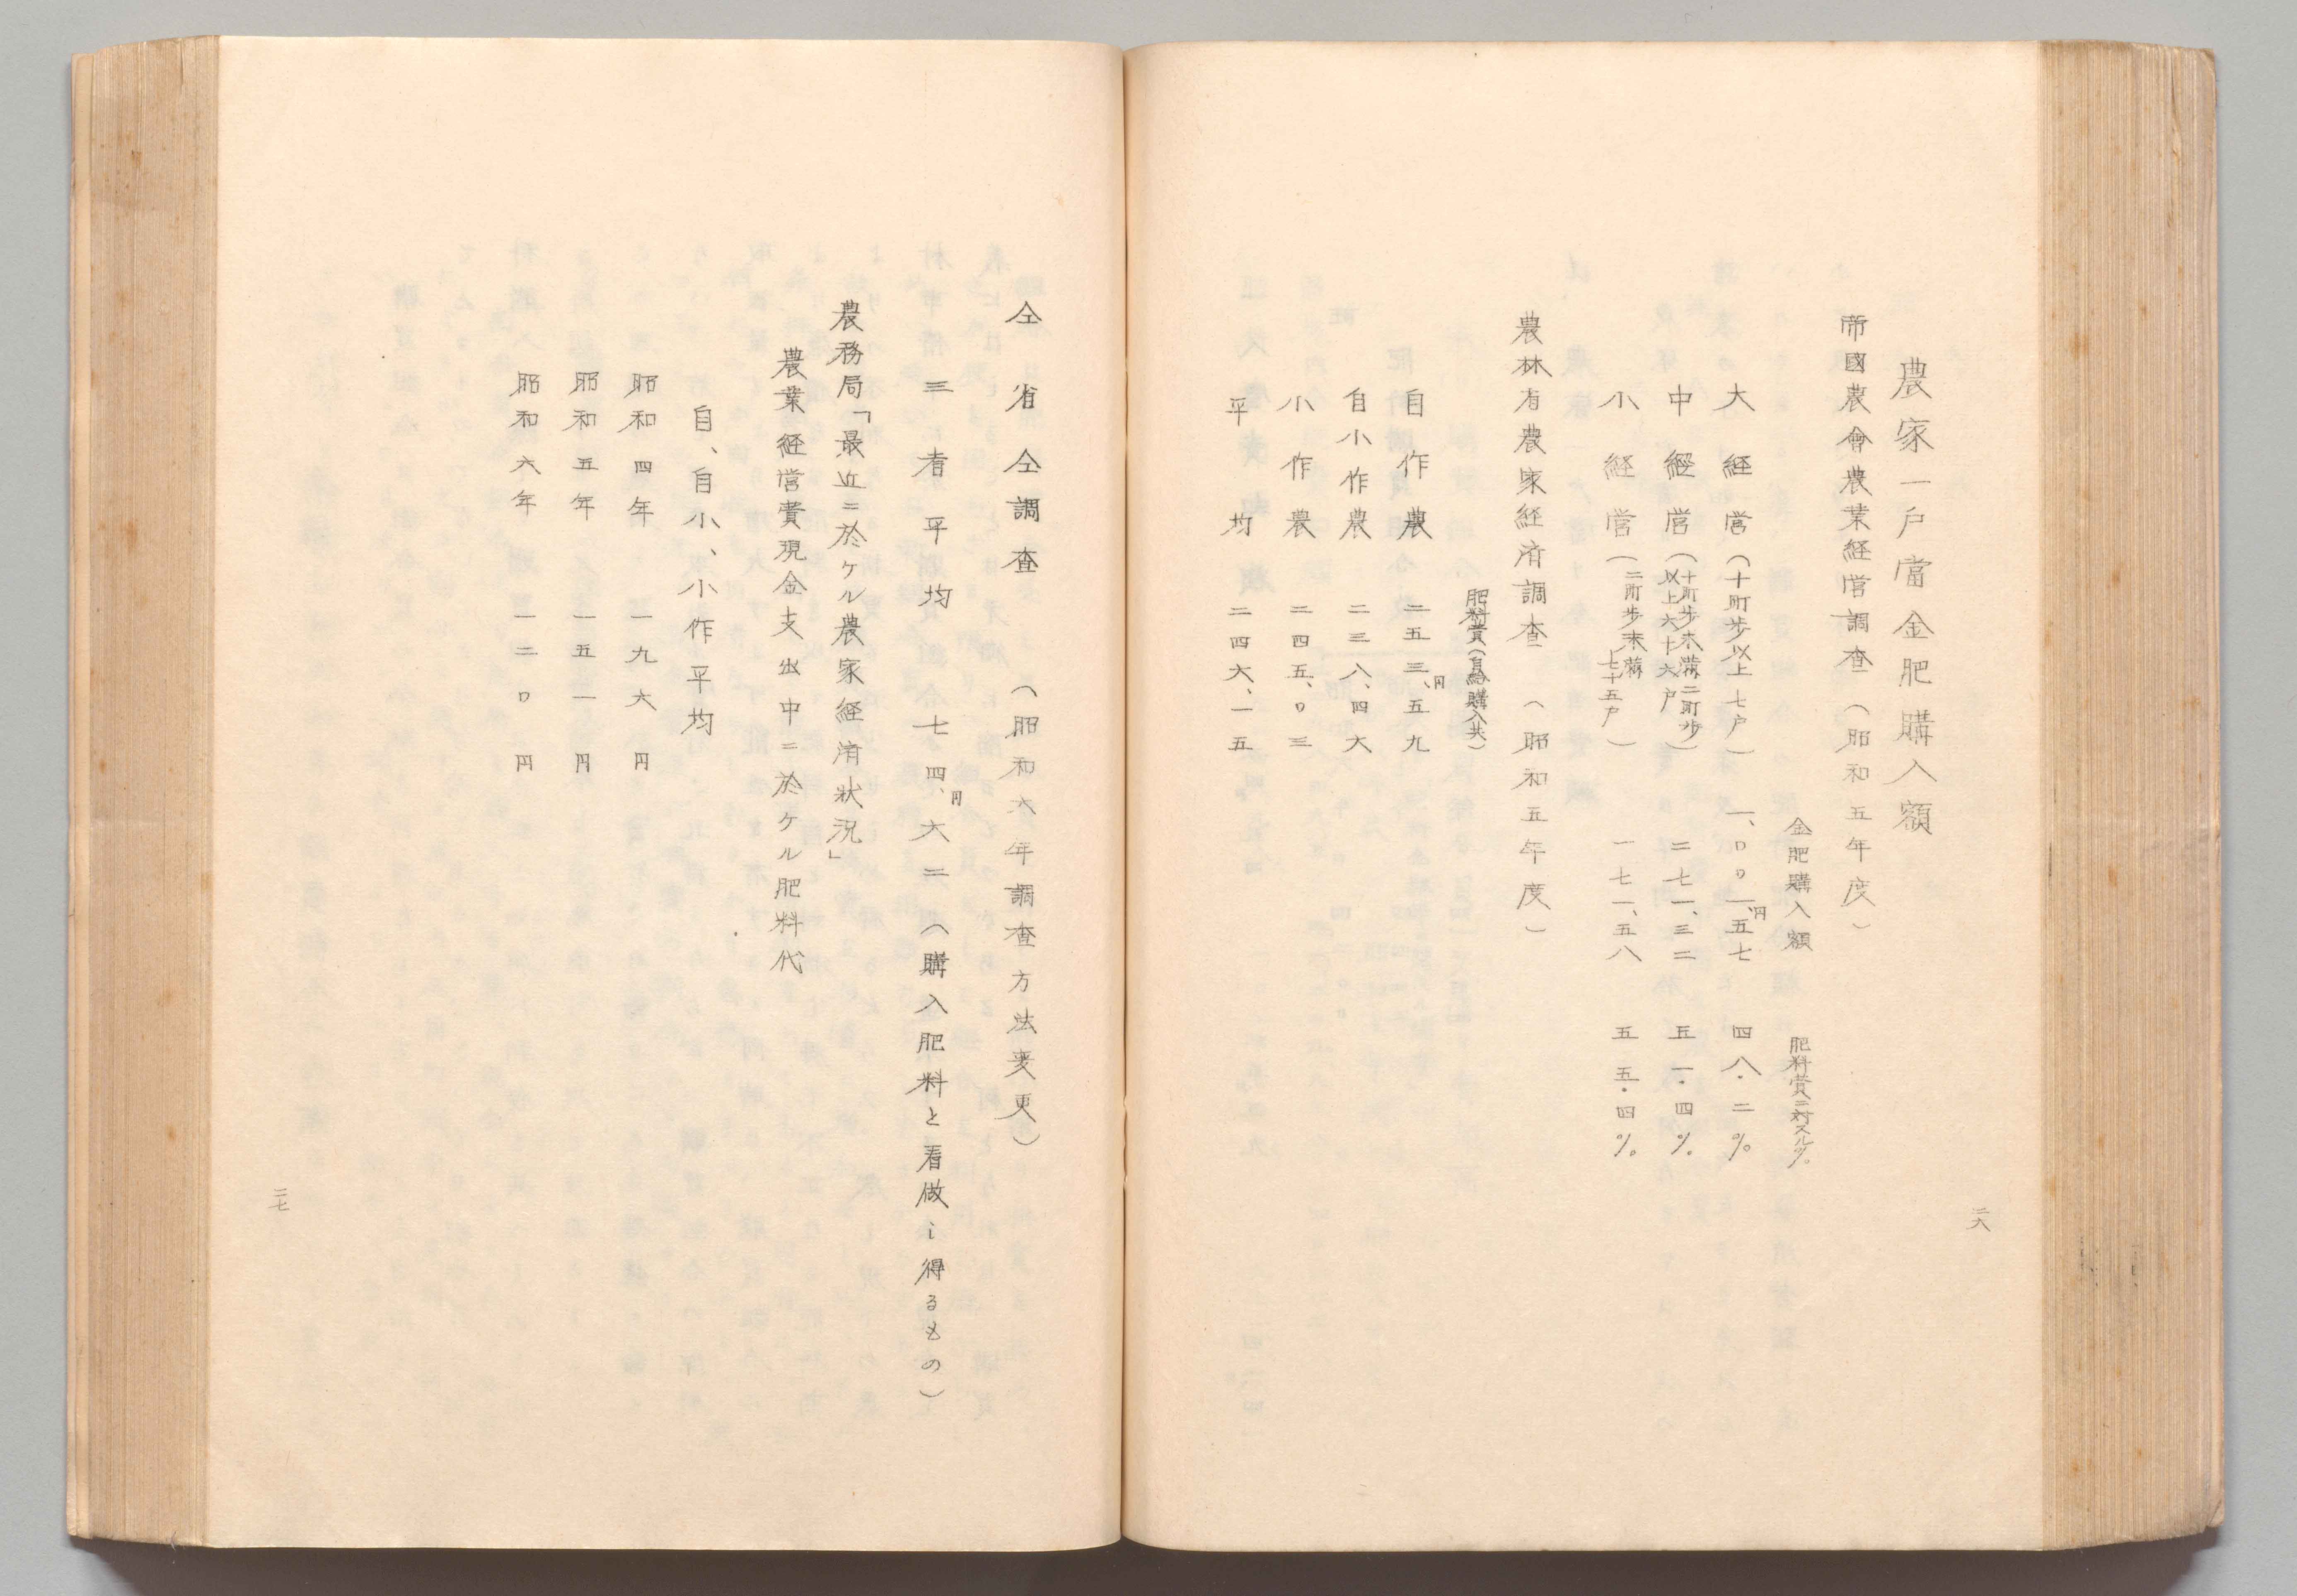 農家一戸當金肥購入額
帝國農會農業経営調査（昭和五年度）
金肥購入額　肥料費ニ対スル%
大経営（十町歩以上七戸）　一、〇〇一、五七円　四八・二%
中経営（十町歩未満二町歩以上六十六戸）　二七一、三二　五一・四%
小経営（二町歩未満七十五戸）　一七一、五八　五五・四%
農林省農家経済調査（昭和五年度）
肥料費（自給購入共）
自作農　二五三、五九円
自小作農　二三八、四六
小作農　二四五、〇三
平均　二四六、一五
二六
仝省仝調査（昭和六年調査方法変更）
三者平均　七四、六二円（購入肥料と看做し得るもの）
農務局「最近ニ於ケル農家経済状況」
農業経営費現金支出中ニ於ケル肥料代
自、自小、小作平均
昭和四年　一九六円
昭和五年　一五一円
昭和六年　一二〇円
二七